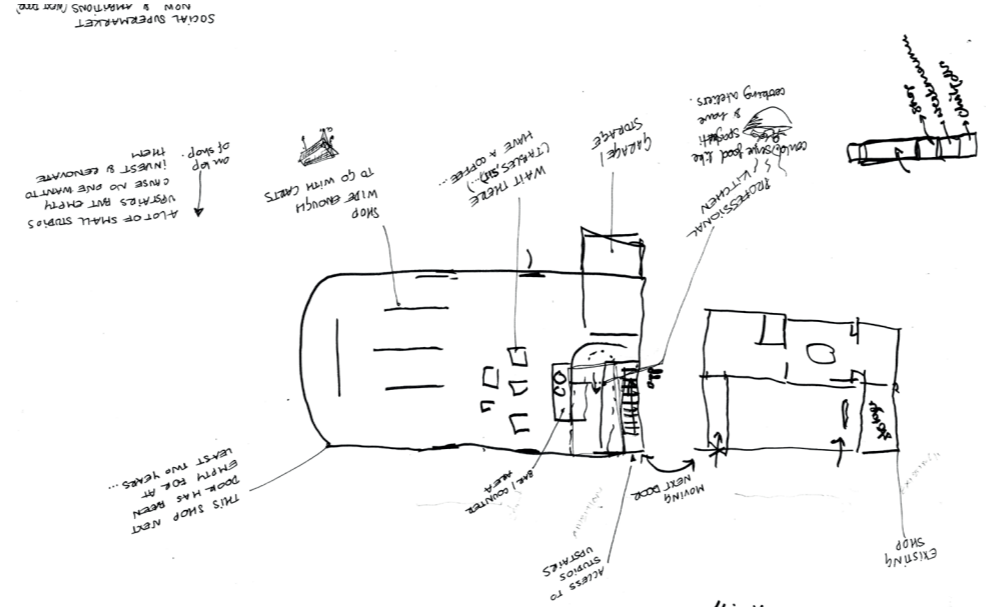 EXISTING
SHOP
ACCESS TO
STUDIOS
UPSTAIRS
MOVING
NEXT DOOR
BAR / COUNTER
AREA
THIS SHOP NEXT
DOOR HAS BEEN
EMPTY FOR AT
LEAST TWO YEARS...
storage
PROFESSIONAL
KITCHEN
could serve food like
spaghetti
& have
cooking ateliers.
GARAGE /
STORAGE
WAIT THERE
HAVE A COFFEE...
SHOP
WIDE ENOUGH
TO GO WITH CARTS
A LOT OF SMALL STUDIOS
UPSTAIRS BUT EMPTY
CAUSE NO ONE WANT TO
INVEST & RENOVATE
THEM
on top
of shop.
SOCIAL SUPERMARKET
NOW & AMBITIONS (next door)